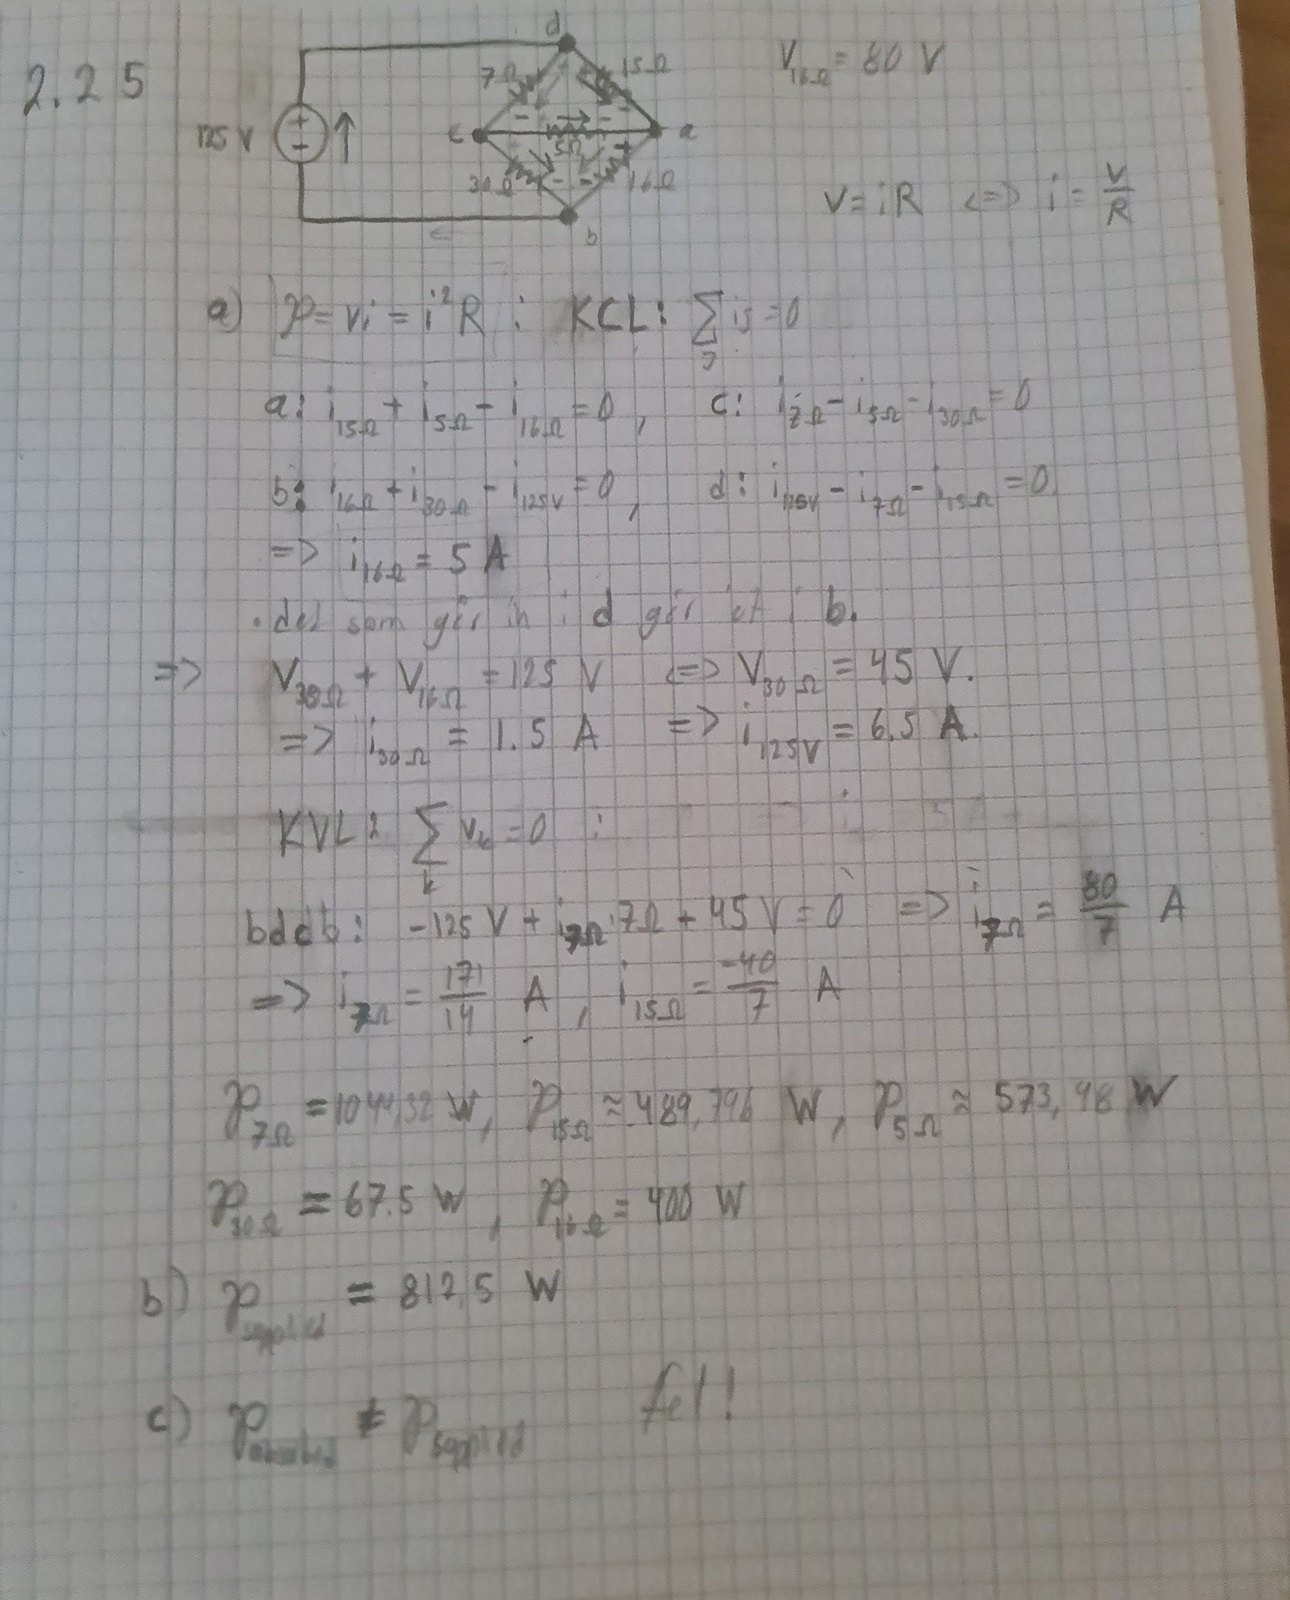 2.25
d
7Ω
15Ω
V_16Ω = 80 V
125 V
+
-
c
5Ω
a
30Ω
16Ω
b
V = iR <=> i = V/R
a) p = vi = i²R : KCL: ∑_j i_j = 0
a: i_15Ω + i_5Ω - i_16Ω = 0, c: i_7Ω - i_5Ω - i_30Ω = 0
b: i_16Ω + i_30Ω - i_125V = 0, d: i_125V - i_7Ω - i_15Ω = 0
=> i_16Ω = 5 A
. del som går in i d går ut i b.
=> V_30Ω + V_16Ω = 125 V <=> V_30Ω = 45 V.
=> i_30Ω = 1.5 A => i_125V = 6,5 A.
KVL: ∑_k v_k = 0 :
bdcb: -125 V + i_7Ω · 7Ω + 45 V = 0 => i_7Ω = 80/7 A
=> i_7Ω = 171/14 A, i_15Ω = -40/7 A
p_7Ω = 1044,32 W, p_15Ω ≈ 489,796 W, p_5Ω ≈ 573,98 W
p_30Ω = 67.5 W, p_16Ω = 400 W
b) p_supplied = 812,5 W
c) p_absorbed ≠ p_supplied fel!